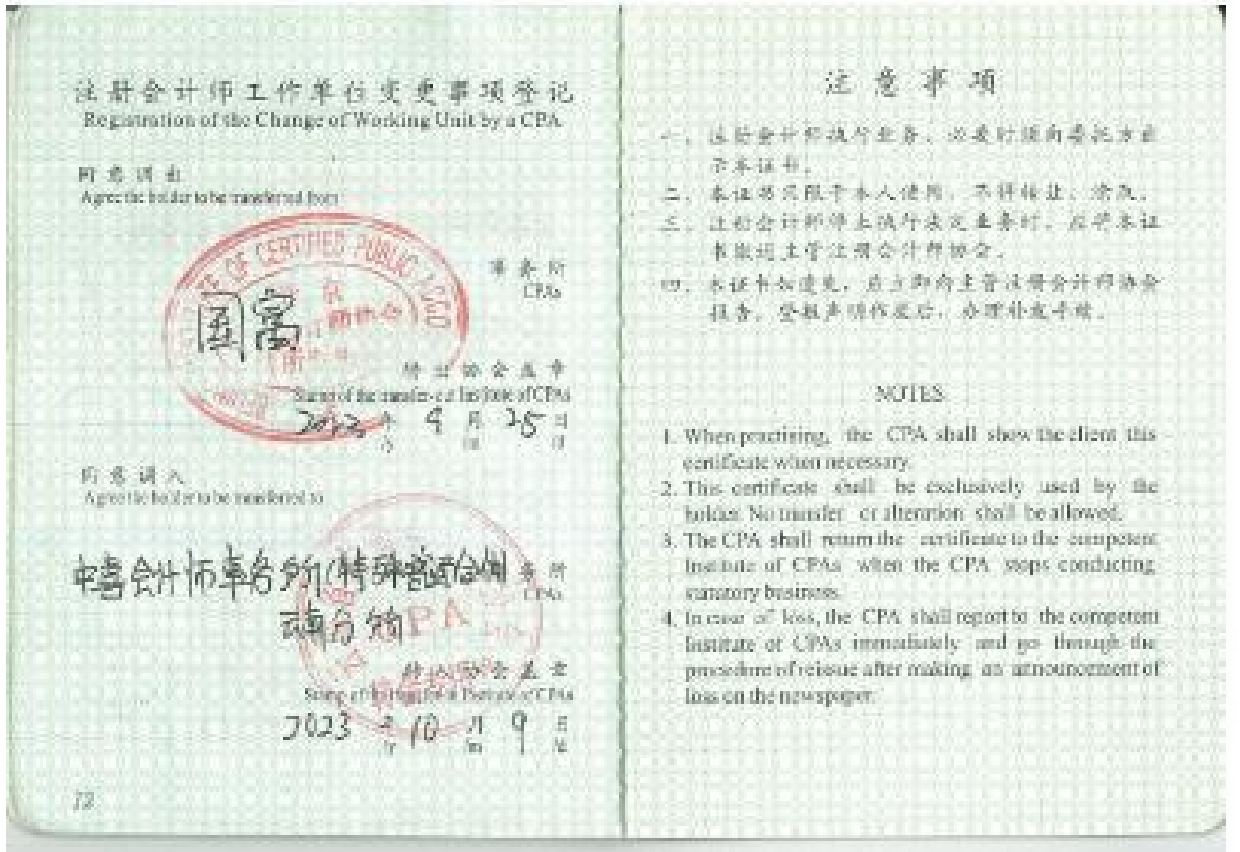 注册会计师工作单位变更事项登记
Registration of the Change of Working Unit by a CPA
同意调出
Agree the holder to be transferred from
OF CERTIFIED PUBLIC
国富
事务所
CPAs
转出协会盖章
Stamp of the transfer-out Institute of CPAs
年 9 月 25 日
同意调入
Agree the holder to be transferred to
中喜会计师事务所(特殊普通合伙)
事务所
CPAs
CPA
转入协会盖章
Stamp of the transfer-in Institute of CPAs
2023 年 10 月 9 日
12
注意事项
一、注册会计师执行业务，必要时须向委托方出
示本证书。
二、本证书只限于本人使用，不得转让、涂改。
三、注册会计师停止执行法定业务时，应将本证
书缴还主管注册会计师协会。
四、本证书如遗失，应立即向主管注册会计师协会
报告，登报声明作废后，办理补发手续。
NOTES
1. When practising, the CPA shall show the client this
certificate when necessary.
2. This certificate shall be exclusively used by the
holder. No transfer or alteration shall be allowed.
3. The CPA shall return the certificate to the competent
Institute of CPAs when the CPA stops conducting
statutory business.
4. In case of loss, the CPA shall report to the competent
Institute of CPAs immediately and go through the
procedure of reissue after making an announcement of
loss on the newspaper.